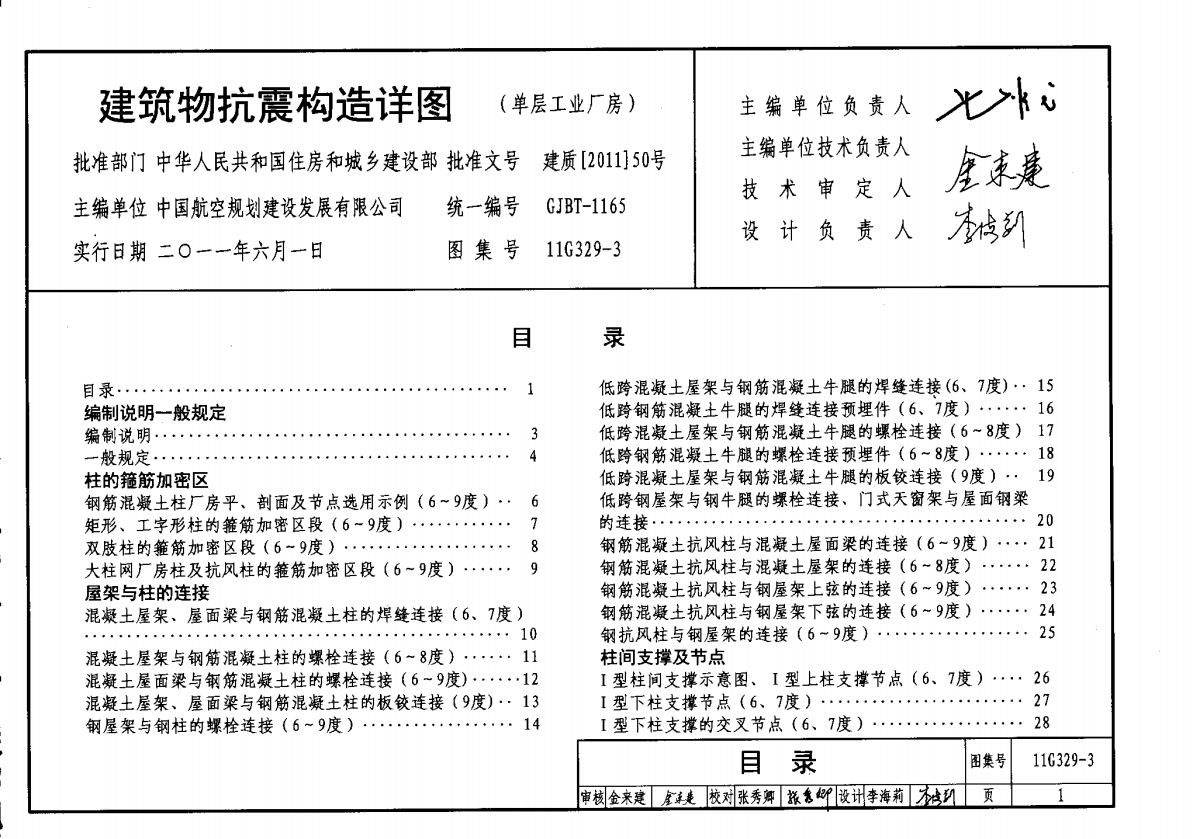 建筑物抗震构造详图 （单层工业厂房）
批准部门 中华人民共和国住房和城乡建设部 批准文号 建质[2011]50号
主编单位 中国航空规划建设发展有限公司 统一编号 GJBT-1165
实行日期 二〇一一年六月一日 图集号 11G329-3
主编单位负责人
主编单位技术负责人 金来建
技术审定人
设计负责人
目 录
目录·············································· 1
编制说明一般规定
编制说明·········································· 3
一般规定·········································· 4
柱的箍筋加密区
钢筋混凝土柱厂房平、剖面及节点选用示例（6~9度）·· 6
矩形、工字形柱的箍筋加密区段（6~9度）············ 7
双肢柱的箍筋加密区段（6~9度）···················· 8
大柱网厂房柱及抗风柱的箍筋加密区段（6~9度）······ 9
屋架与柱的连接
混凝土屋架、屋面梁与钢筋混凝土柱的焊缝连接（6、7度）
·················································· 10
混凝土屋架与钢筋混凝土柱的螺栓连接（6~8度）······ 11
混凝土屋面梁与钢筋混凝土柱的螺栓连接（6~9度)······12
混凝土屋架、屋面梁与钢筋混凝土柱的板铰连接（9度)·· 13
钢屋架与钢柱的螺栓连接（6~9度）·················· 14
低跨混凝土屋架与钢筋混凝土牛腿的焊缝连接(6、7度)·· 15
低跨钢筋混凝土牛腿的焊缝连接预埋件（6、7度）······ 16
低跨混凝土屋架与钢筋混凝土牛腿的螺栓连接（6~8度） 17
低跨钢筋混凝土牛腿的螺栓连接预埋件（6~8度）······ 18
低跨混凝土屋架与钢筋混凝土牛腿的板铰连接（9度）·· 19
低跨钢屋架与钢牛腿的螺栓连接、门式天窗架与屋面钢梁
的连接············································ 20
钢筋混凝土抗风柱与混凝土屋面梁的连接（6~9度）···· 21
钢筋混凝土抗风柱与混凝土屋架的连接（6~8度）······ 22
钢筋混凝土抗风柱与钢屋架上弦的连接（6~9度）······ 23
钢筋混凝土抗风柱与钢屋架下弦的连接（6~9度）······ 24
钢抗风柱与钢屋架的连接（6~9度）·················· 25
柱间支撑及节点
I型柱间支撑示意图、I型上柱支撑节点（6、7度）···· 26
I型下柱支撑节点（6、7度）························ 27
I型下柱支撑的交叉节点（6、7度）·················· 28
目 录 图集号 11G329-3
审核 金来建 金来建 校对 张秀卿 张秀卿 设计 李海莉 页 1